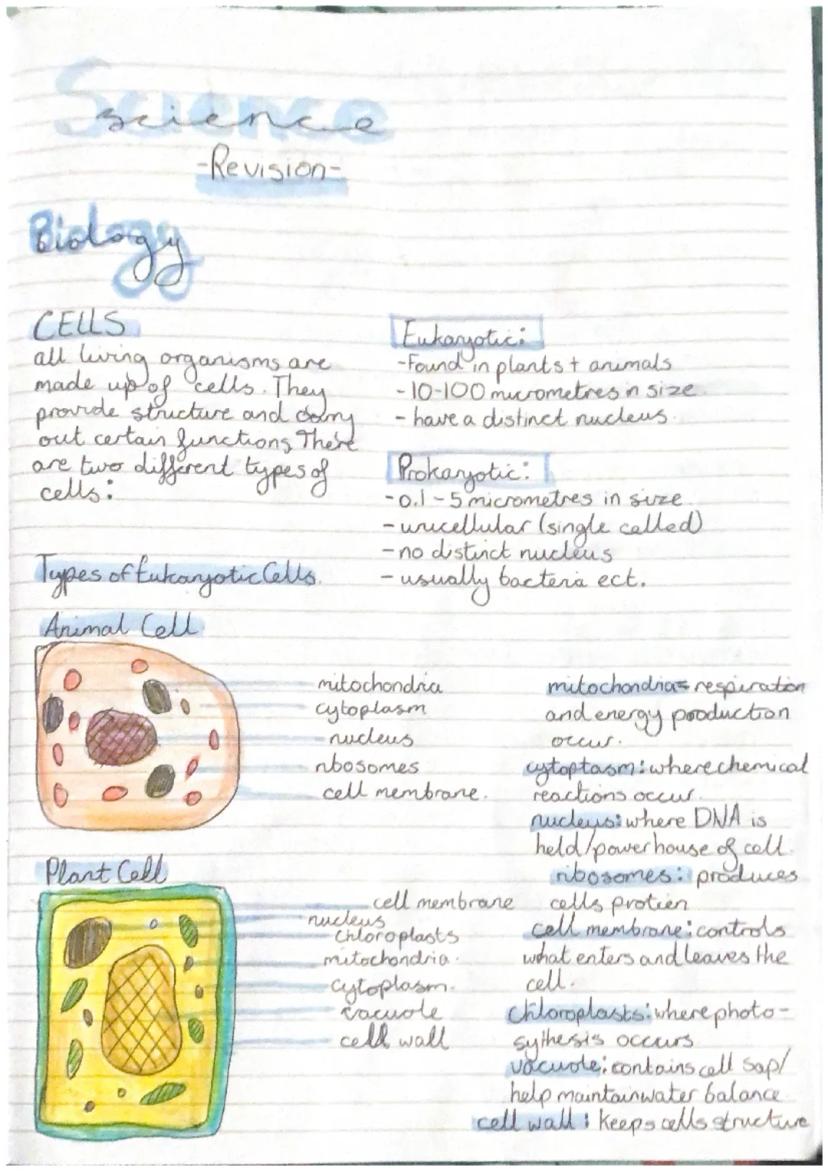 Science
science
-Revision-
Biology
CELLS
all living organisms are
made up of cells. They
provide structure and carry
out certain functions, There
are two different types of
cells:
Eukaryotic:
-Found in plants + animals
-10-100 micrometres n size
- have a distinct nucleus.
Prokaryotic:
-0.1-5 micrometres in size
- unicellular (single celled)
- no distinct nucleus
- usually bacteria ect.
Types of Eukaryotic Cells.
Animal Cell
mitochondria
cytoplasm
nucleus
ribosomes
cell membrane.
Plant Cell
cell membrane
nucleus
chloroplasts
mitochondria.
cytoplasm.
vacuole
cell wall
mitochondria= respiration
and energy production
occur.
cytoplasm: where chemical
reactions occur.
nucleus: where DNA is
held/powerhouse of cell.
ribosomes: produces
cells protien
cell membrane: controls
what enters and leaves the
cell.
chloroplasts: where photo-
sythesis occurs
vacuole: contains cell sap/
help maintain water balance
cell wall: keeps cells structure